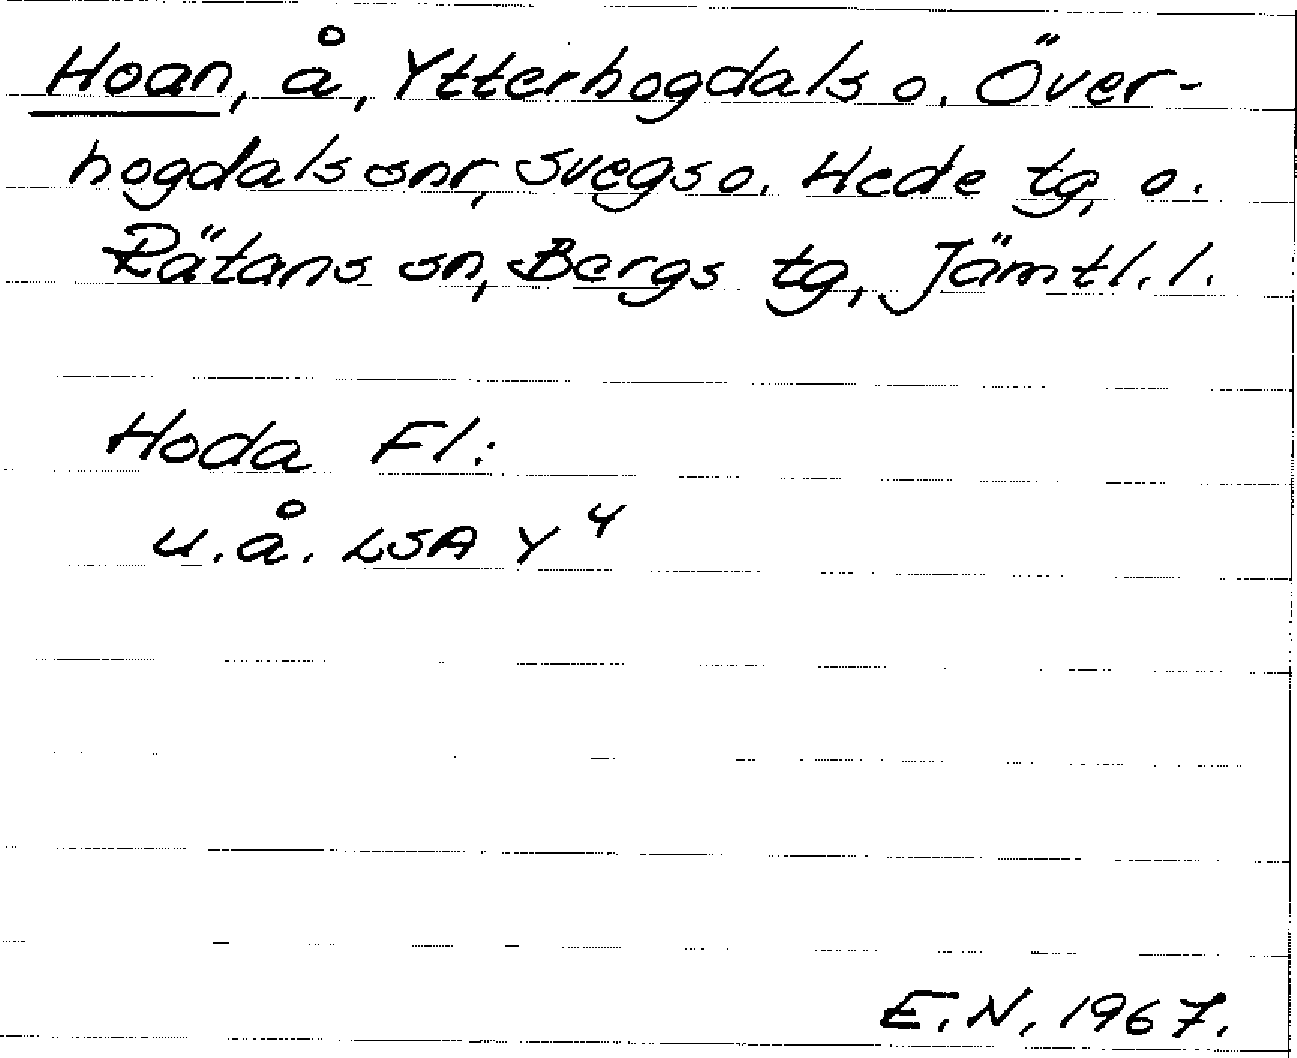 Hoan, å, Ytterhogdals o. Över-
hogdals snr, Svegs o. Hede tg, o.
Rätans sn, Bergs tg, Jämtl. l.
Hoda Fl:
u.å. LSA Y 4
E.N. 1967.